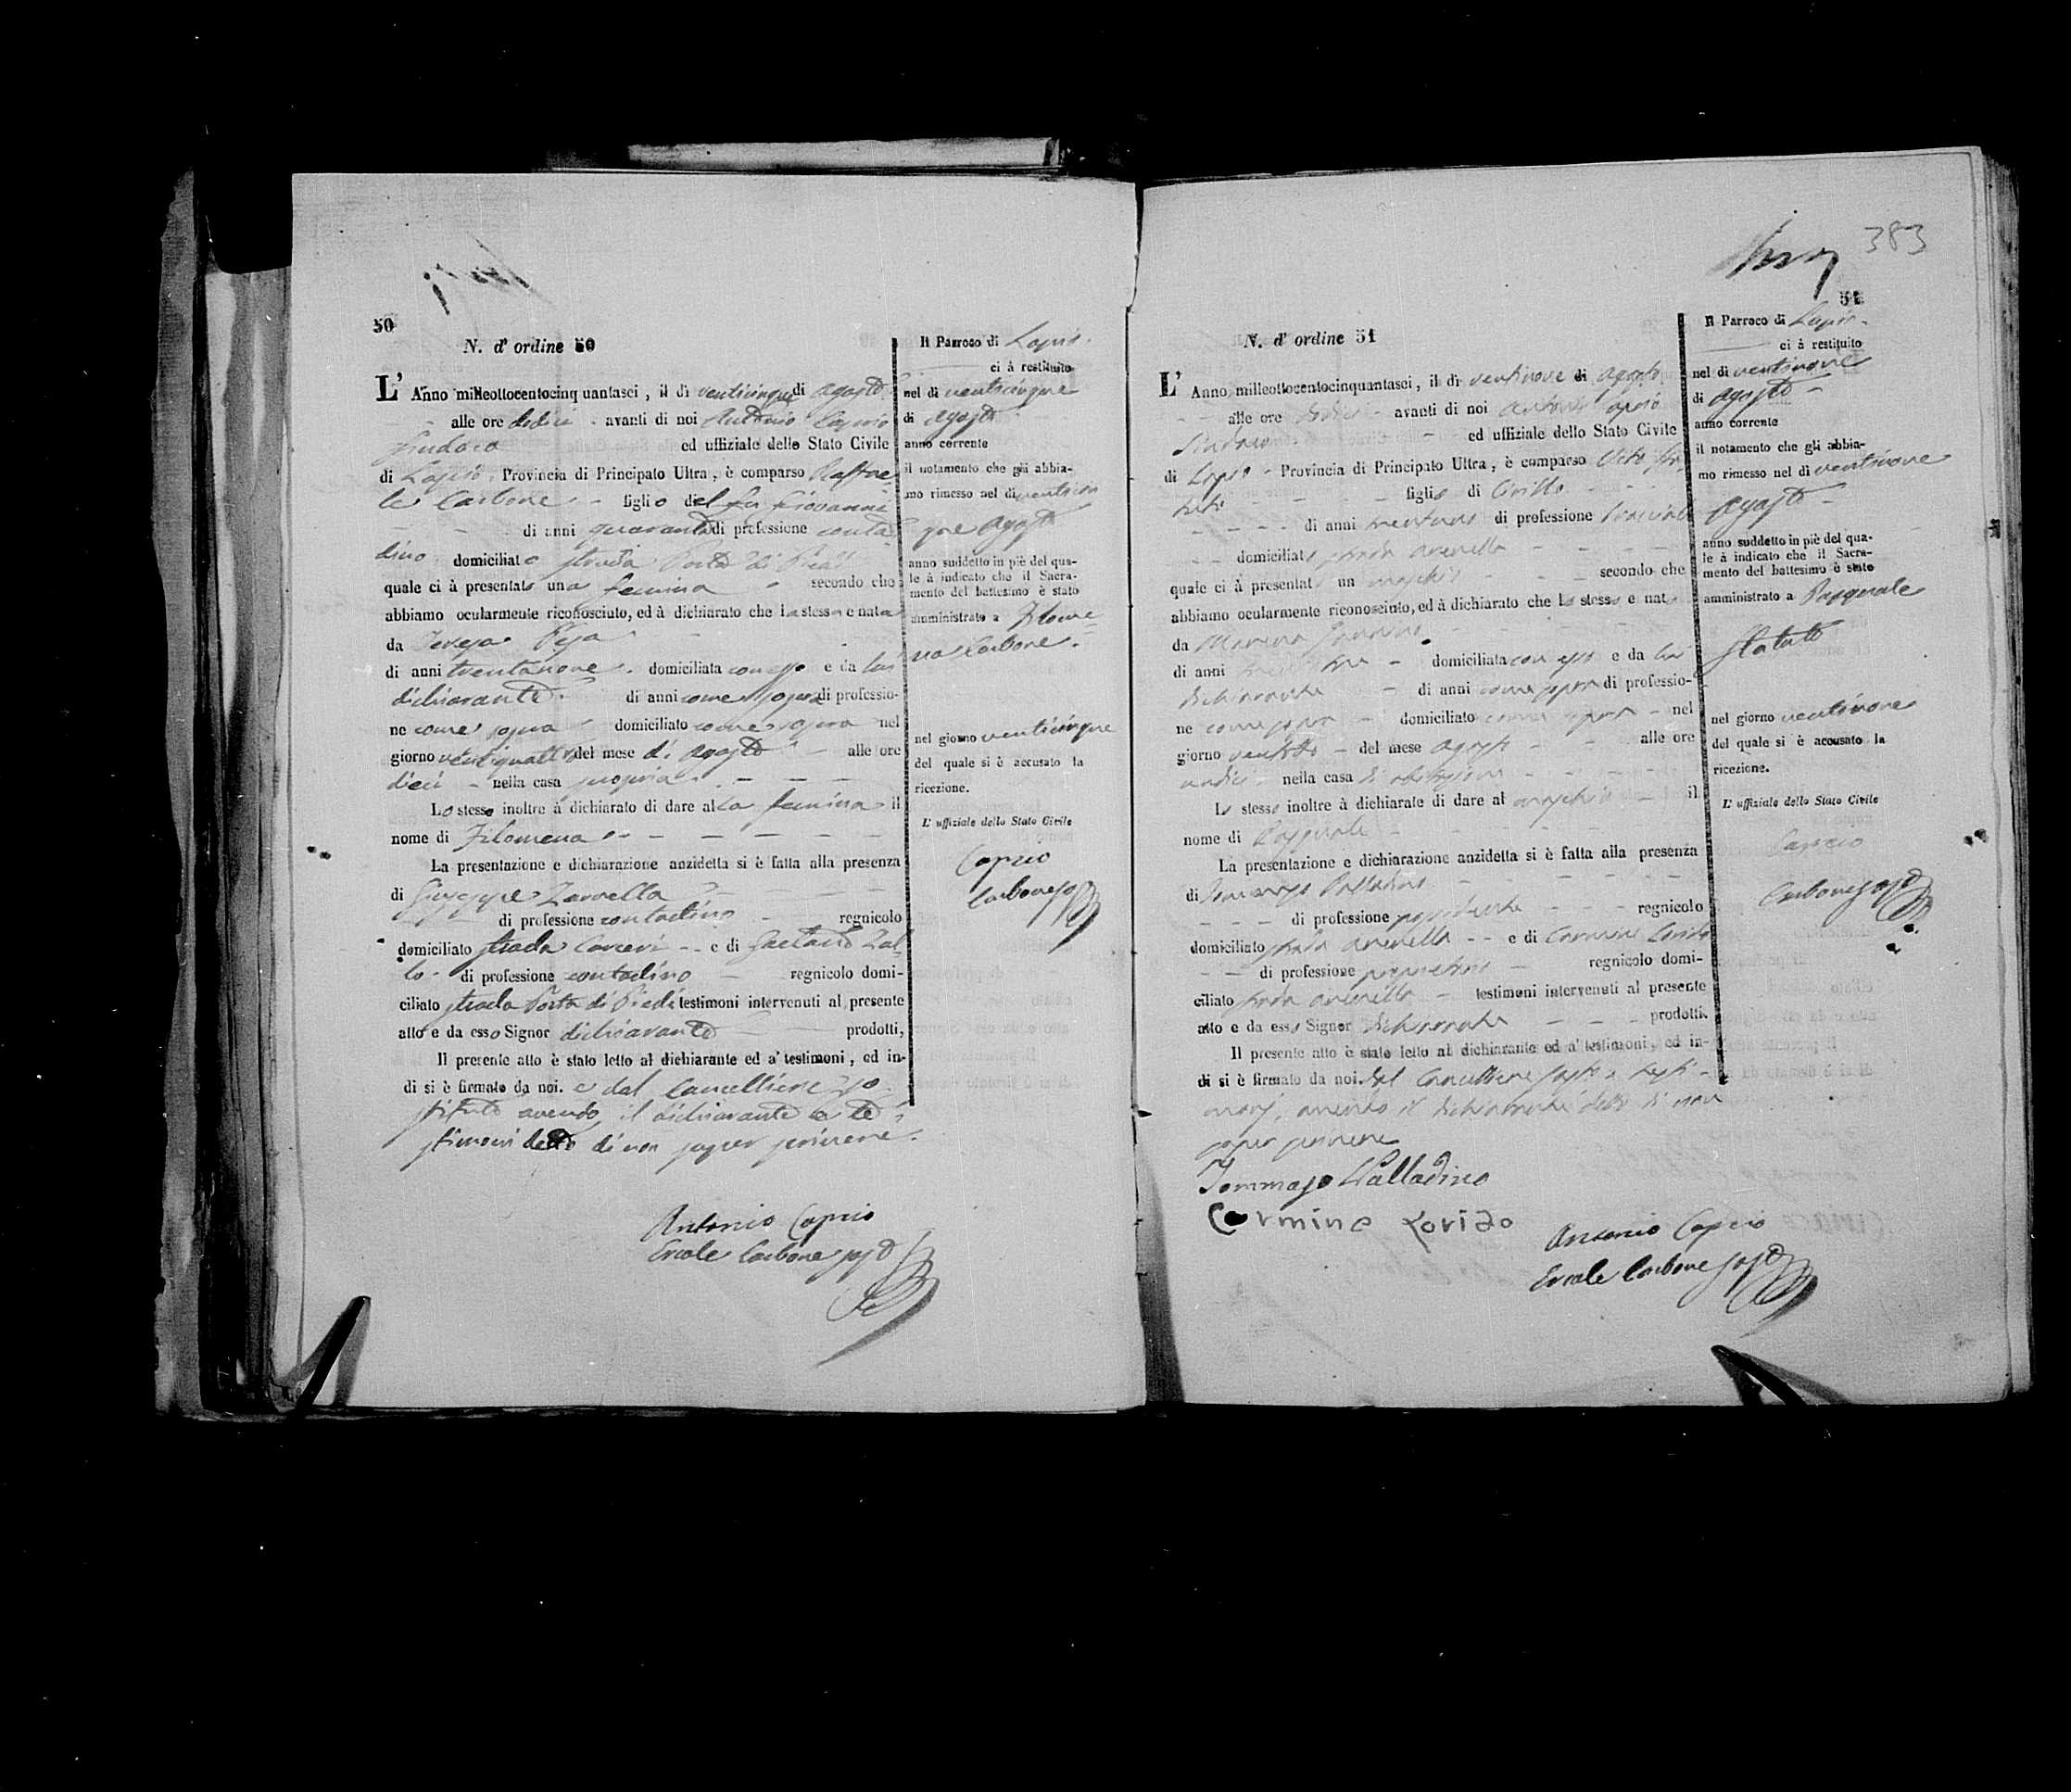 50
N. d' ordine 50
L' Anno milleottocentocinquantasei, il dì venticinque di agosto
alle ore dodici avanti di noi Antonio Caprio
Sindaco ed uffiziale dello Stato Civile
di Lapio Provincia di Principato Ultra, è comparso Raffae
le Carbone figlio del fu Giovanni
di anni quaranta di professione conta
dino domiciliato strada Porta di Piedi
quale ci à presentato una femina secondo che
abbiamo ocularmente riconosciuto, ed à dichiarato che la stessa e nata
da Teresa
di anni trentanove domiciliata con esso e da lui
dichiarante di anni come sopra di professio-
ne come sopra domiciliato come sopra nel
giorno ventiquattro del mese di agosto alle ore
dieci nella casa propria
Lo stesso inoltre à dichiarato di dare alla femina il
nome di Filomena
La presentazione e dichiarazione anzidetta si è fatta alla presenza
di Giuseppe
di professione contadino regnicolo
domiciliato strada Carceri e di Gaetano Zal
lo di professione contadino regnicolo domi-
ciliato strada Porta di Piedi testimoni intervenuti al presente
atto e da esso Signor dichiarante prodotti,
Il presente atto è stato letto al dichiarante ed a' testimoni, ed in-
di si è firmato da noi. e dal Cancelliere so
stituto avendo il dichiarante e te
stimoni detto di non saper scrivere.
Antonio Caprio
Ercole Carbone sost
Il Parroco di Lapio
ci à restituito
nel dì venticinque
di agosto
anno corrente
il notamento che gli abbia-
mo rimesso nel dì venticin
que agosto
anno suddetto in piè del qua-
le à indicato che il Sacra-
mento del battesimo è stato
amministrato a Filome
na Carbone.
nel giorno venticinque
del quale si è accusato la
ricezione.
L' uffiziale dello Stato Civile
Caprio
Carbone sost
383
51
N. d' ordine 51
L' Anno milleottocentocinquantasei, il dì ventinove di agosto
alle ore avanti di noi Antonio Caprio
Sindaco ed uffiziale dello Stato Civile
di Lapio Provincia di Principato Ultra, è comparso Vito Sta
tuto figlio di Cirillo
di anni di professione
domiciliato strada Arenella
quale ci à presentato un maschio secondo che
abbiamo ocularmente riconosciuto, ed à dichiarato che lo stesso e nato
da
di anni domiciliata con esso e da lui
dichiarante di anni come sopra di professio-
ne come sopra domiciliato come sopra nel
giorno ventotto del mese agosto alle ore
undici nella casa di abitazione
Lo stesso inoltre à dichiarato di dare al maschio il
nome di Pasquale
La presentazione e dichiarazione anzidetta si è fatta alla presenza
di Tommaso Palladino
di professione regnicolo
domiciliato strada Arenella e di Carmine Lorido
di professione proprietario regnicolo domi-
ciliato strada Arenella testimoni intervenuti al presente
atto e da esso Signor dichiarante prodotti.
Il presente atto è stato letto al dichiarante ed a' testimoni, ed in-
di si è firmato da noi. dal Cancelliere sost e testi-
monj, avendo il dichiarante detto di non
saper scrivere
Tommaso Palladino
Carmine Lorido
Antonio Caprio
Ercole Carbone sost
Il Parroco di Lapio
ci à restituito
nel dì ventinove
di agosto
anno corrente
il notamento che gli abbia-
mo rimesso nel dì ventinove
agosto
anno suddetto in piè del qua-
le à indicato che il Sacra-
mento del battesimo è stato
amministrato a Pasquale
Statuto
nel giorno ventinove
del quale si è accusato la
ricezione.
L' uffiziale dello Stato Civile
Caprio
Carbone sost